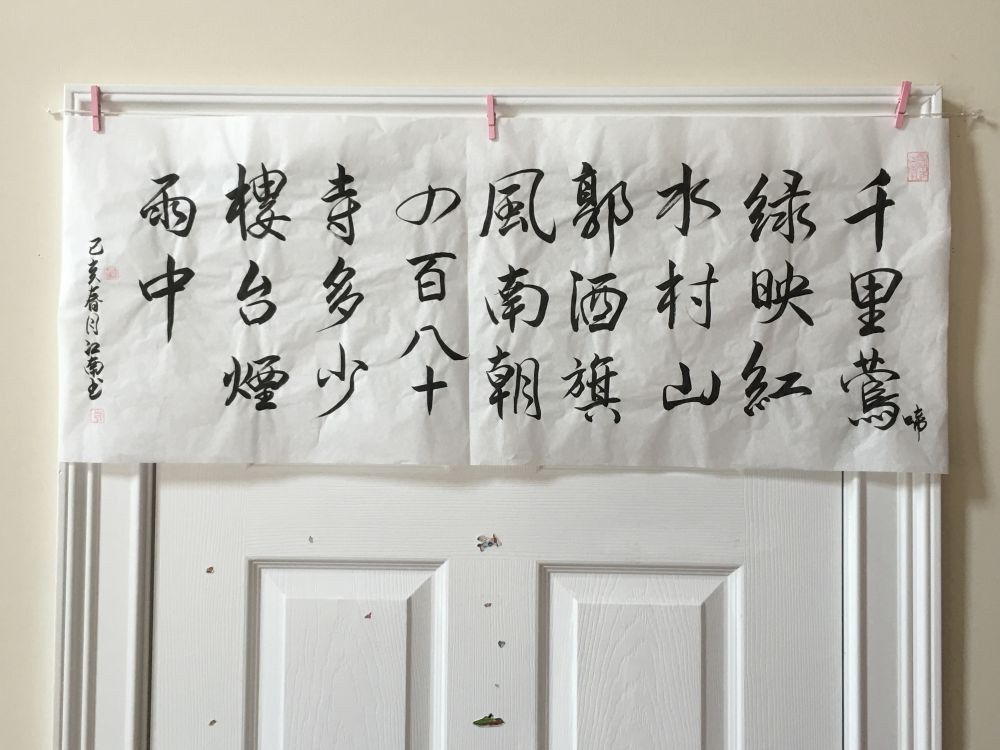 千里莺啼
绿映红
水村山
郭酒旗
風南朝
四百八十
寺多少
楼台煙
雨中
己亥春月江南书